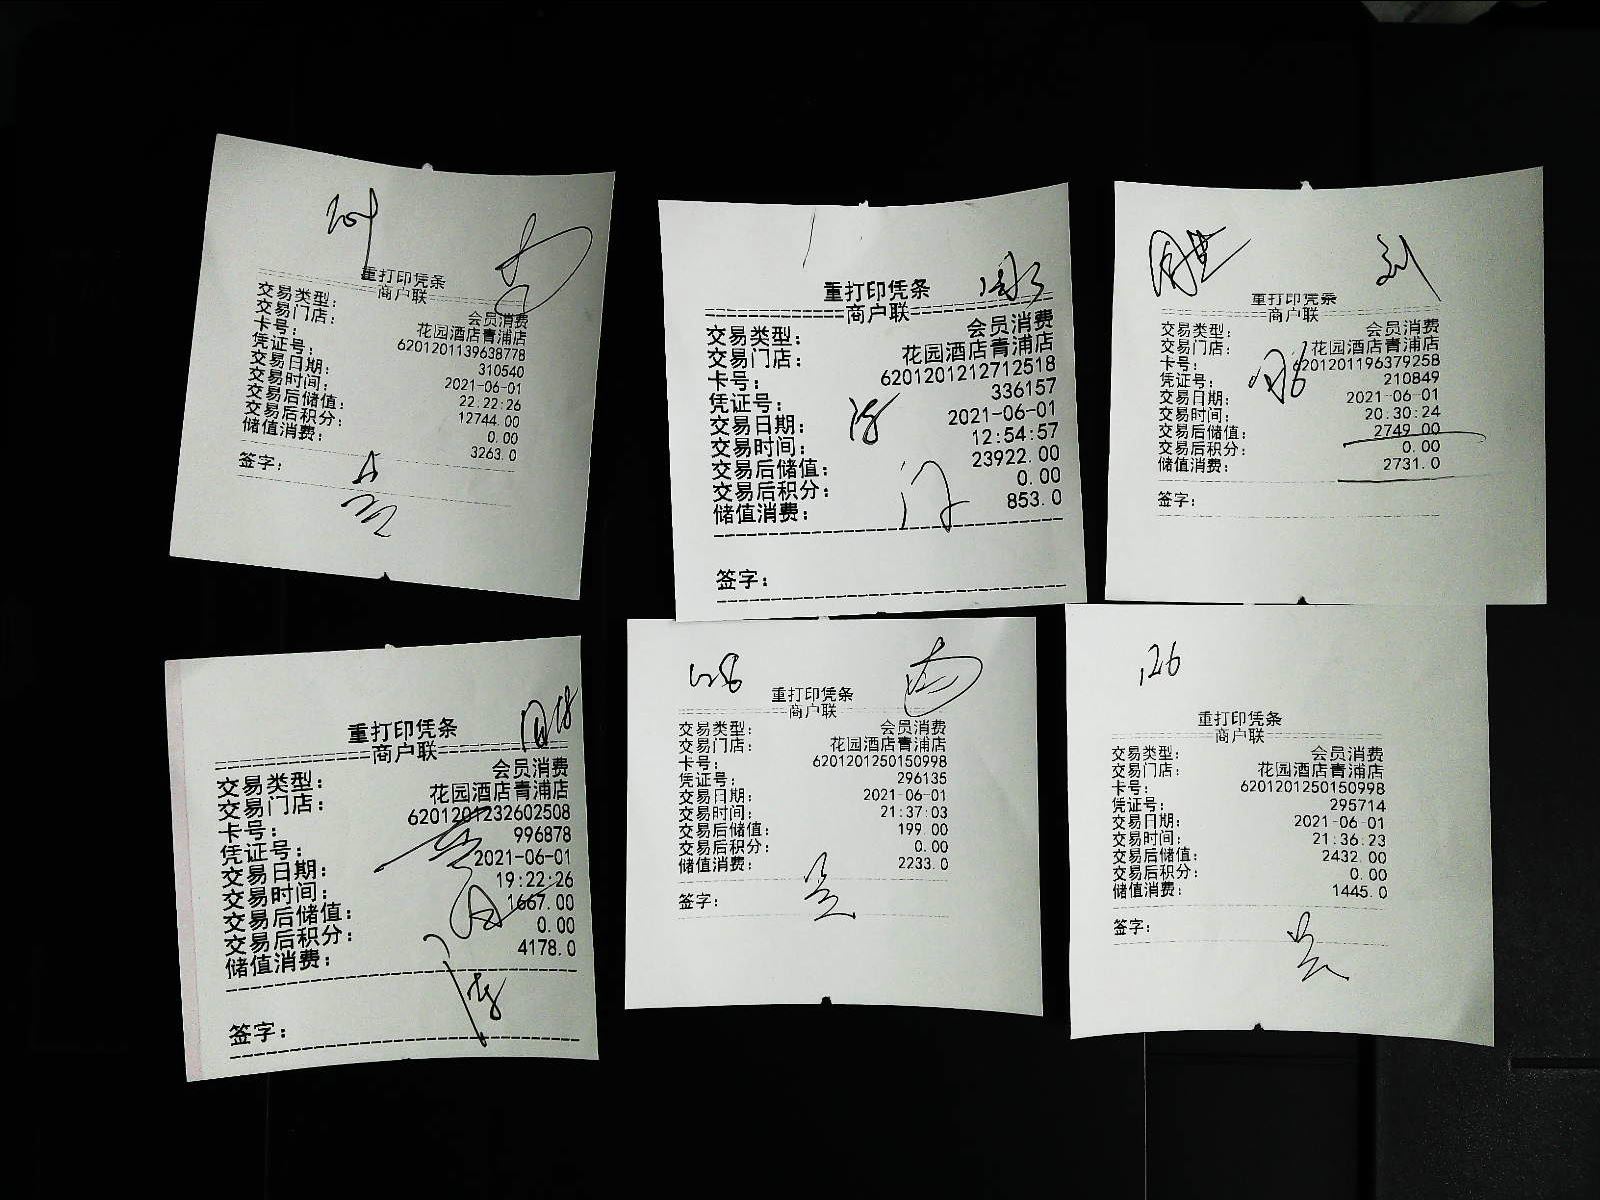 重打印凭条
商户联
交易类型： 会员消费
交易门店： 花园酒店青浦店
卡号： 6201201139638778
凭证号： 310540
交易日期： 2021-06-01
交易时间： 22:22:26
交易后储值： 12744.00
交易后积分： 0.00
储值消费： 3263.0
签字：
重打印凭条
商户联
交易类型： 会员消费
交易门店： 花园酒店青浦店
卡号： 6201201212712518
凭证号： 336157
交易日期： 2021-06-01
交易时间： 12:54:57
交易后储值： 23922.00
交易后积分： 0.00
储值消费： 853.0
签字：
刘
重打印凭条
商户联
交易类型： 会员消费
交易门店： 花园酒店青浦店
卡号： 6201201196379258
凭证号： 210849
交易日期： 2021-06-01
交易时间： 20:30:24
交易后储值： 2749.00
交易后积分： 0.00
储值消费： 2731.0
签字：
重打印凭条
商户联
交易类型： 会员消费
交易门店： 花园酒店青浦店
卡号： 6201201232602508
凭证号： 996878
交易日期： 2021-06-01
交易时间： 19:22:26
交易后储值： 1667.00
交易后积分： 0.00
储值消费： 4178.0
签字：
重打印凭条
商户联
交易类型： 会员消费
交易门店： 花园酒店青浦店
卡号： 6201201250150998
凭证号： 296135
交易日期： 2021-06-01
交易时间： 21:37:03
交易后储值： 199.00
交易后积分： 0.00
储值消费： 2233.0
签字：
126
重打印凭条
商户联
交易类型： 会员消费
交易门店： 花园酒店青浦店
卡号： 6201201250150998
凭证号： 295714
交易日期： 2021-06-01
交易时间： 21:36:23
交易后储值： 2432.00
交易后积分： 0.00
储值消费： 1445.0
签字：